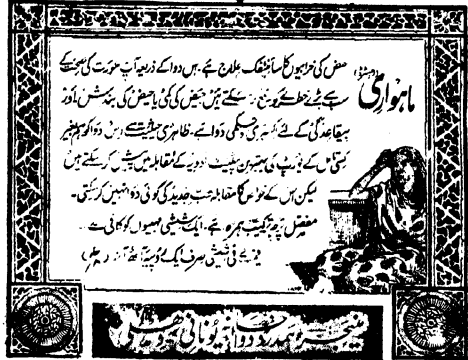 ماہواری (رجسٹرڈ)
حیض کی خرابیوں کا سائنٹفک علاج ہے، اس دوا کے ذریعہ آپ عورت کی صحت کے
سب سے بڑے خطرے کو دور کر سکتے ہیں حیض کی کمی یا حیض کی بندش اور
بیقاعدگی کے لئے حکمی دوا ہے۔ ظاہری حیثیت سے اس دوا کو ہم بغیر
کسی تامل کے یورپ کی بہترین پیٹنٹ ادویہ کے مقابلہ میں پیش کر سکتے ہیں
لیکن اس کے خواص کا مقابلہ طب جدید کی کوئی دوا نہیں کر سکتی۔
مفصل پرچہ ترکیب ہمراہ ہے، ایک شیشی مہینوں کو کافی ہے۔
قیمت فی شیشی صرف ایک روپیہ آٹھ آنہ
منیجر ہمدرد دواخانہ یونانی دہلی